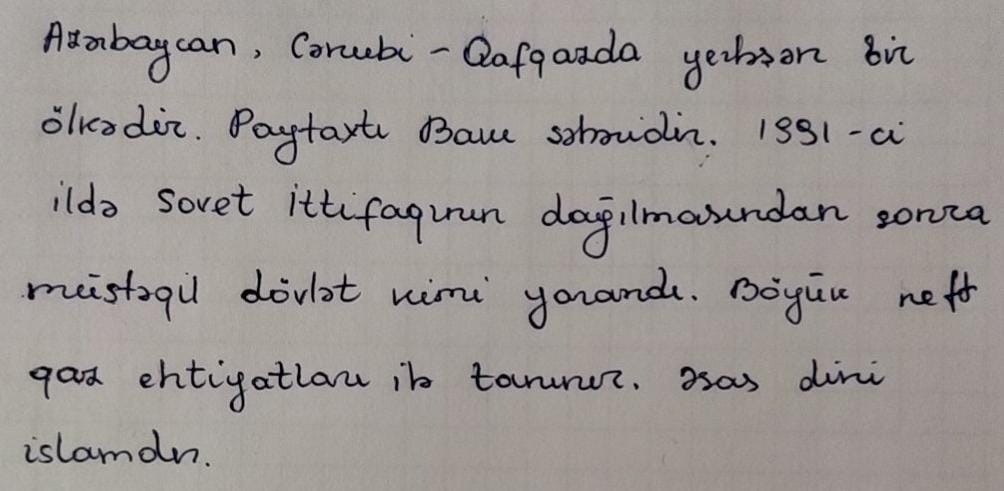 Azərbaycan, Cənubi - Qafqazda yerləşən bir
ölkədir. Paytaxtı Bakı şəhəridir. 1991-ci
ildə Sovet İttifaqının dağılmasından sonra
müstəqil dövlət kimi yarandı. Böyük neft
qaz ehtiyatları ilə tanınır. Əsas dini
islamdır.